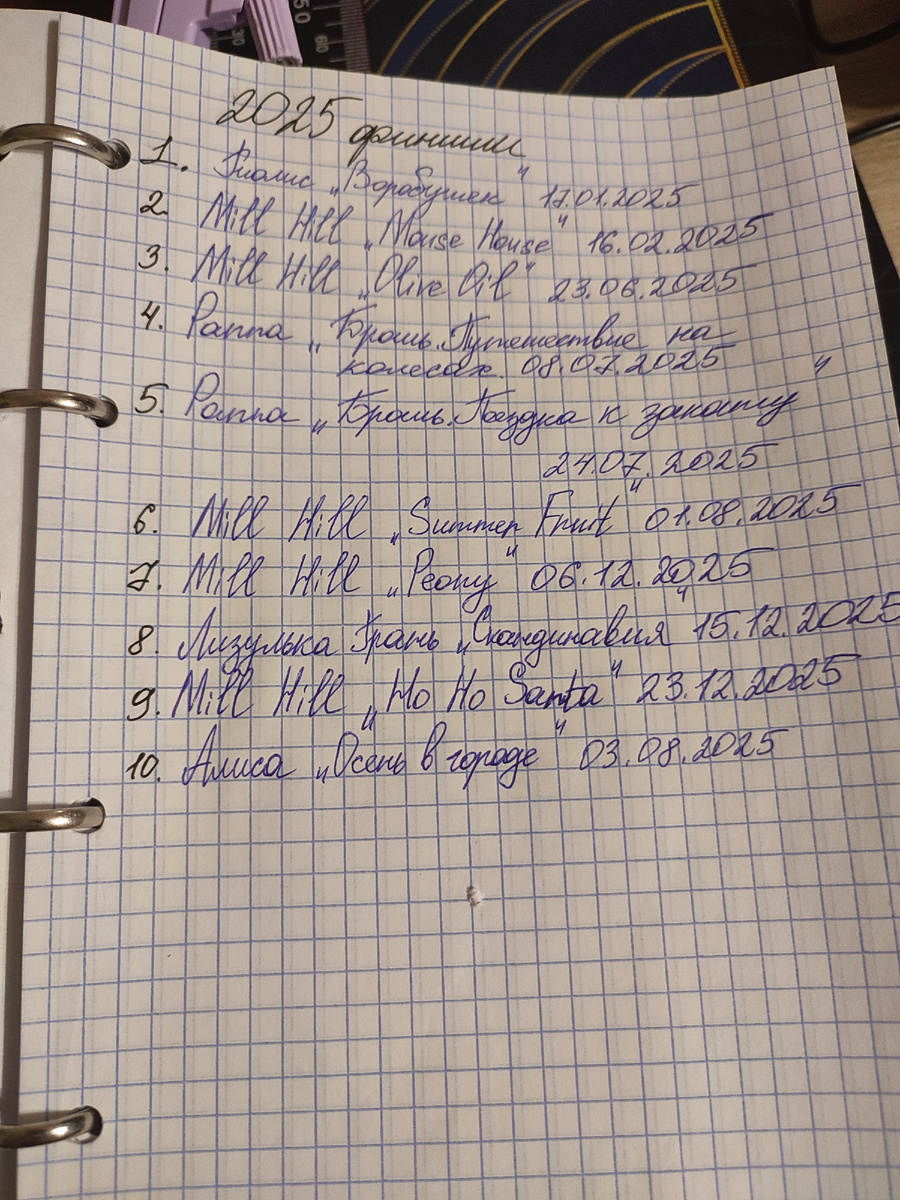 2025 финиши
1. Риолис „Воробушек" 17.01.2025
2. Mill Hill „Mouse House" 16.02.2025
3. Mill Hill „Olive Oil" 23.06.2025
4. Panna „Брошь. Путешествие на
колесах. 08.07.2025
5. Panna „Брошь. Поездка к закату"
24.07.2025
6. Mill Hill „Summer Fruit" 01.08.2025
7. Mill Hill „Peony" 06.12.2025
8. Лизулька Грань „Скандинавия" 15.12.2025
9. Mill Hill „Ho Ho Santa" 23.12.2025
10. Алиса „Осень в городе" 03.08.2025
50
30
60